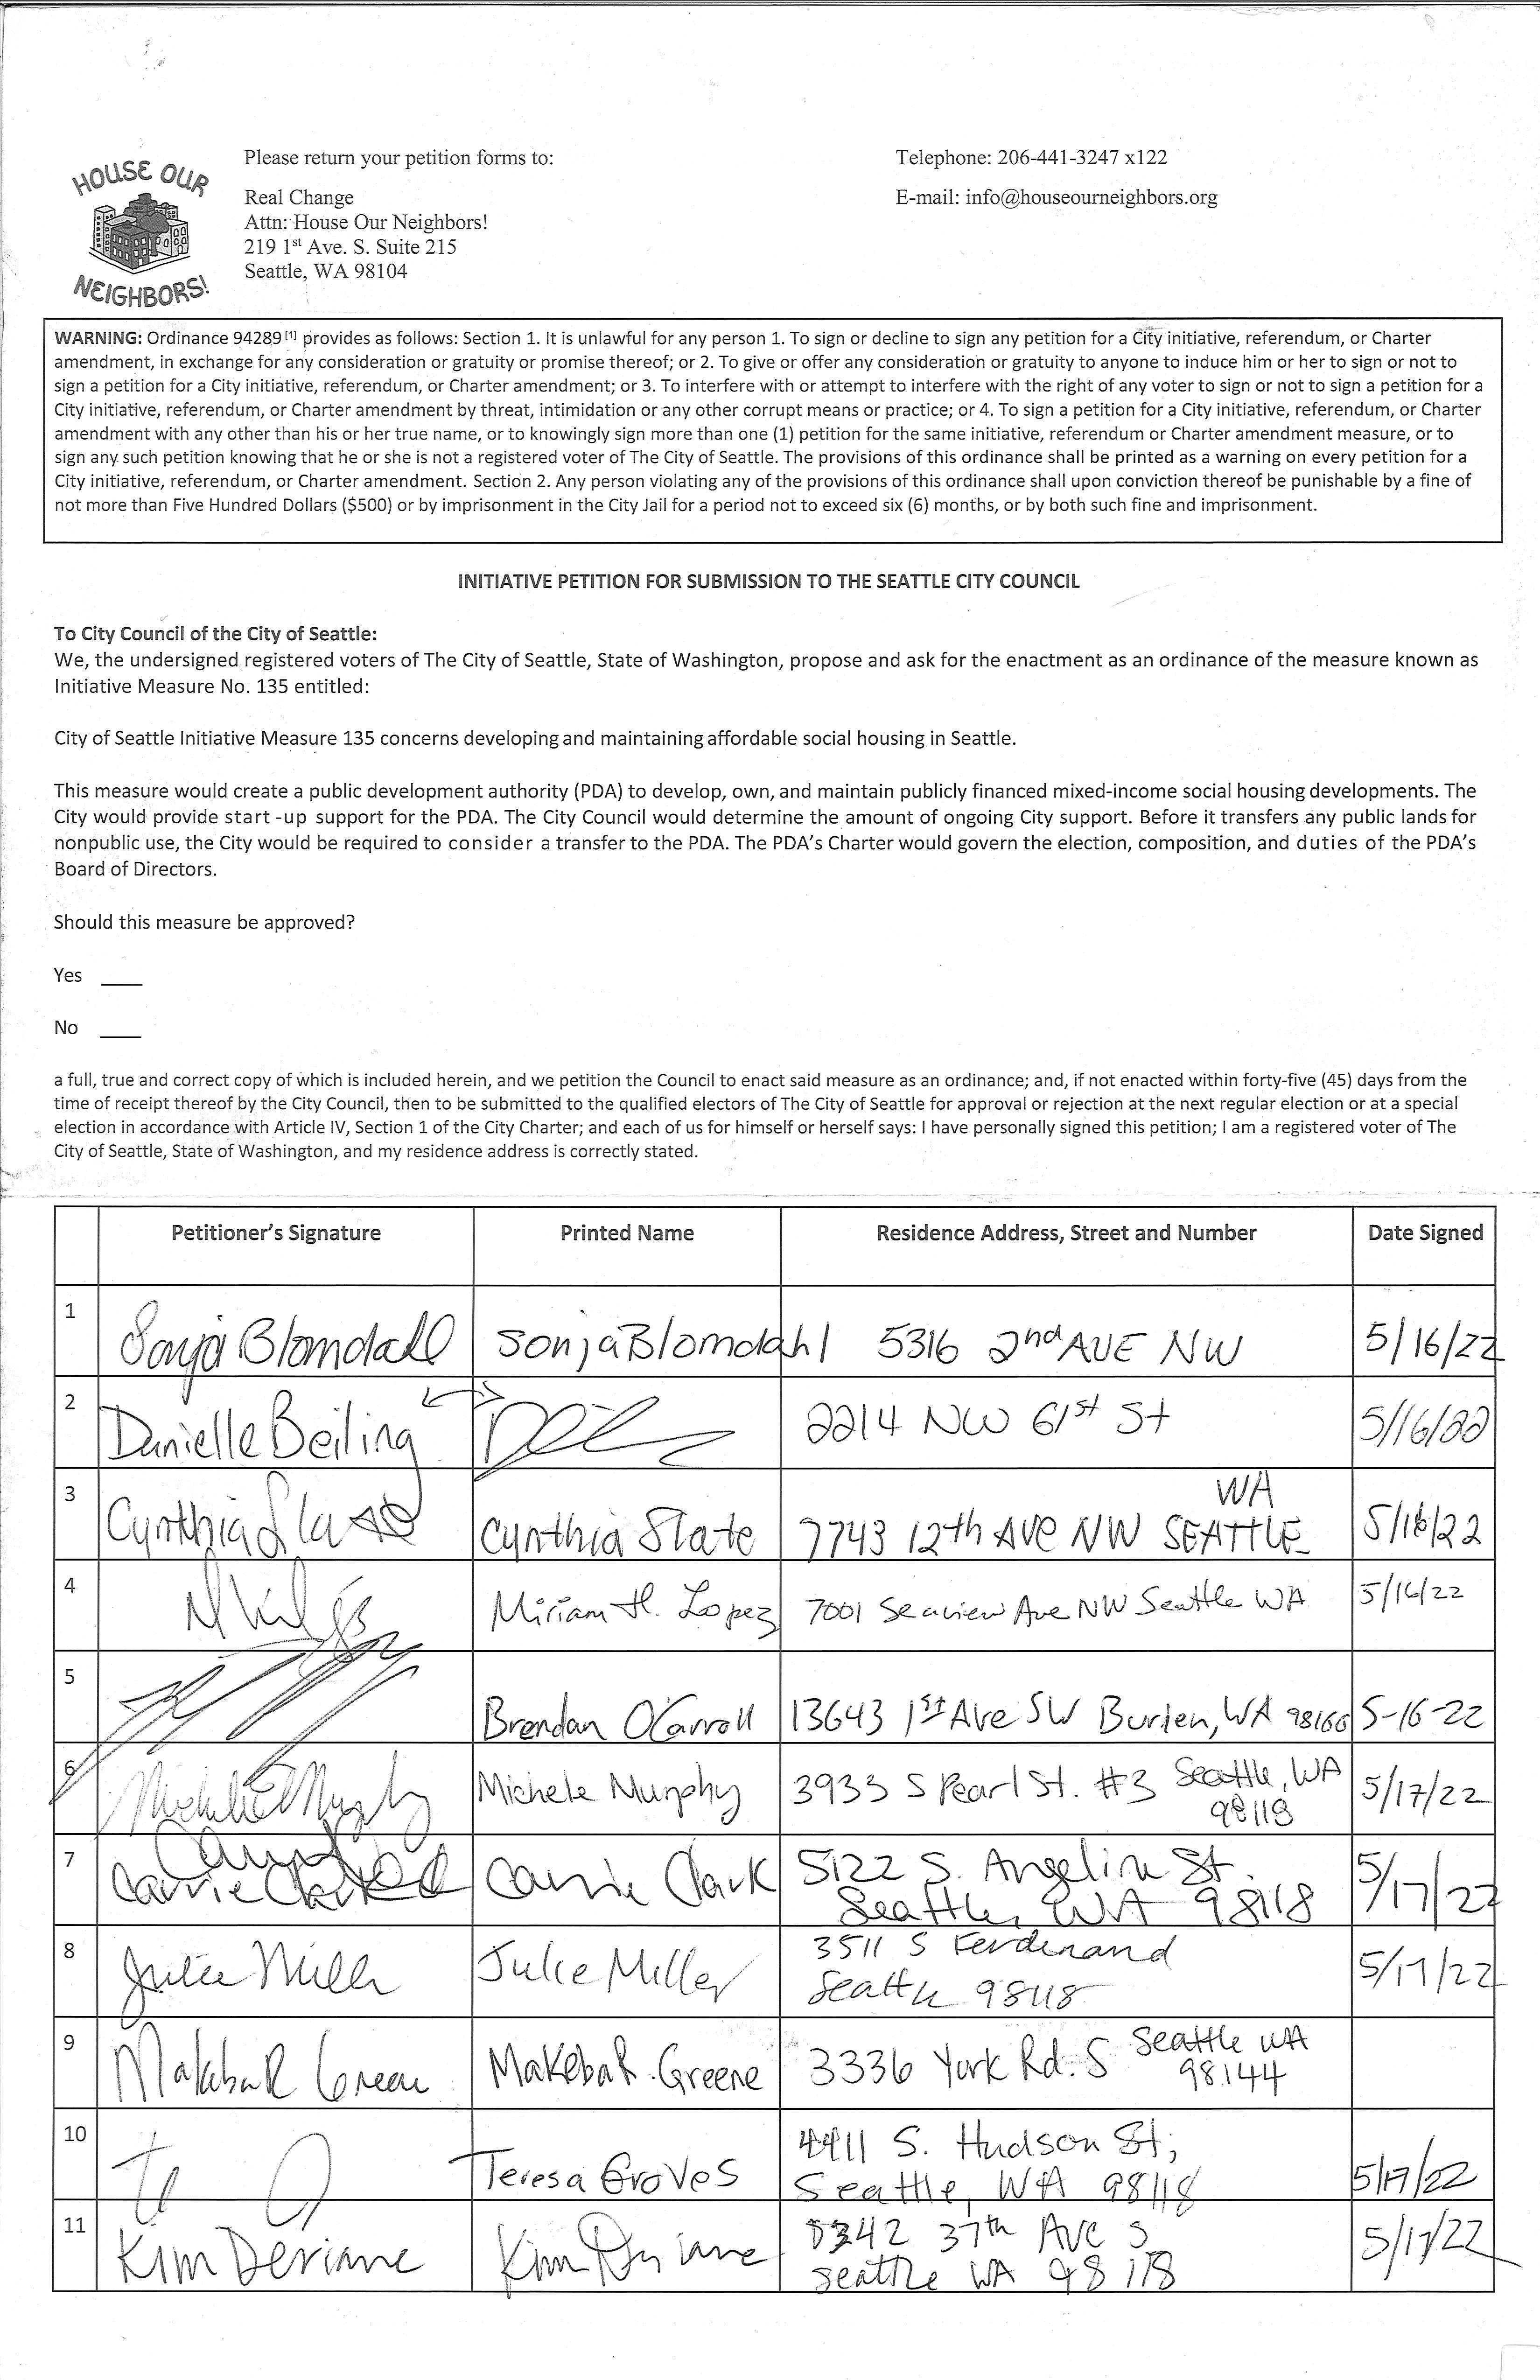 HOUSE OUR
NEIGHBORS!
Please return your petition forms to:
Real Change
Attn: House Our Neighbors!
219 1st Ave. S. Suite 215
Seattle, WA 98104
Telephone: 206-441-3247 x122
E-mail: info@houseourneighbors.org
WARNING: Ordinance 94289 [1] provides as follows: Section 1. It is unlawful for any person 1. To sign or decline to sign any petition for a City initiative, referendum, or Charter
amendment, in exchange for any consideration or gratuity or promise thereof; or 2. To give or offer any consideration or gratuity to anyone to induce him or her to sign or not to
sign a petition for a City initiative, referendum, or Charter amendment; or 3. To interfere with or attempt to interfere with the right of any voter to sign or not to sign a petition for a
City initiative, referendum, or Charter amendment by threat, intimidation or any other corrupt means or practice; or 4. To sign a petition for a City initiative, referendum, or Charter
amendment with any other than his or her true name, or to knowingly sign more than one (1) petition for the same initiative, referendum or Charter amendment measure, or to
sign any such petition knowing that he or she is not a registered voter of The City of Seattle. The provisions of this ordinance shall be printed as a warning on every petition for a
City initiative, referendum, or Charter amendment. Section 2. Any person violating any of the provisions of this ordinance shall upon conviction thereof be punishable by a fine of
not more than Five Hundred Dollars ($500) or by imprisonment in the City Jail for a period not to exceed six (6) months, or by both such fine and imprisonment.
INITIATIVE PETITION FOR SUBMISSION TO THE SEATTLE CITY COUNCIL
To City Council of the City of Seattle:
We, the undersigned registered voters of The City of Seattle, State of Washington, propose and ask for the enactment as an ordinance of the measure known as
Initiative Measure No. 135 entitled:
City of Seattle Initiative Measure 135 concerns developing and maintaining affordable social housing in Seattle.
This measure would create a public development authority (PDA) to develop, own, and maintain publicly financed mixed-income social housing developments. The
City would provide start-up support for the PDA. The City Council would determine the amount of ongoing City support. Before it transfers any public lands for
nonpublic use, the City would be required to consider a transfer to the PDA. The PDA's Charter would govern the election, composition, and duties of the PDA's
Board of Directors.
Should this measure be approved?
Yes ___
No ___
a full, true and correct copy of which is included herein, and we petition the Council to enact said measure as an ordinance; and, if not enacted within forty-five (45) days from the
time of receipt thereof by the City Council, then to be submitted to the qualified electors of The City of Seattle for approval or rejection at the next regular election or at a special
election in accordance with Article IV, Section 1 of the City Charter; and each of us for himself or herself says: I have personally signed this petition; I am a registered voter of The
City of Seattle, State of Washington, and my residence address is correctly stated.
Petitioner's Signature Printed Name Residence Address, Street and Number Date Signed
1 Sonja Blomdahl Sonja Blomdahl 5316 2nd AVE NW 5/16/22
2 Danielle Beiling 2214 NW 61st St 5/16/22
WA
3 Cynthia Slate Cynthia Slate 7743 12th AVE NW SEATTLE 5/16/22
4 Miriam H. Lopez 7001 Seaview Ave NW Seattle WA 5/16/22
5 Brendan O'Carroll 13643 1st Ave SW Burien, WA 98166 5-16-22
6 Michele Murphy Michele Murphy 3933 S Pearl St. #3 Seattle, WA
98118 5/17/22
7 Carrie Clark Carrie Clark 5122 S. Angeline St.
Seattle, WA 98118 5/17/22
8 Julie Miller Julie Miller 3511 S Ferdinand
Seattle 98118 5/17/22
9 Makeba R Greene Makeba R. Greene 3336 York Rd. S Seattle WA
98144
10 Teresa Groves 4411 S. Hudson St,
Seattle, WA 98118 5/17/22
11 Kim Deriane Kim Deriane 37th Ave S
Seattle WA 98118 5/17/22